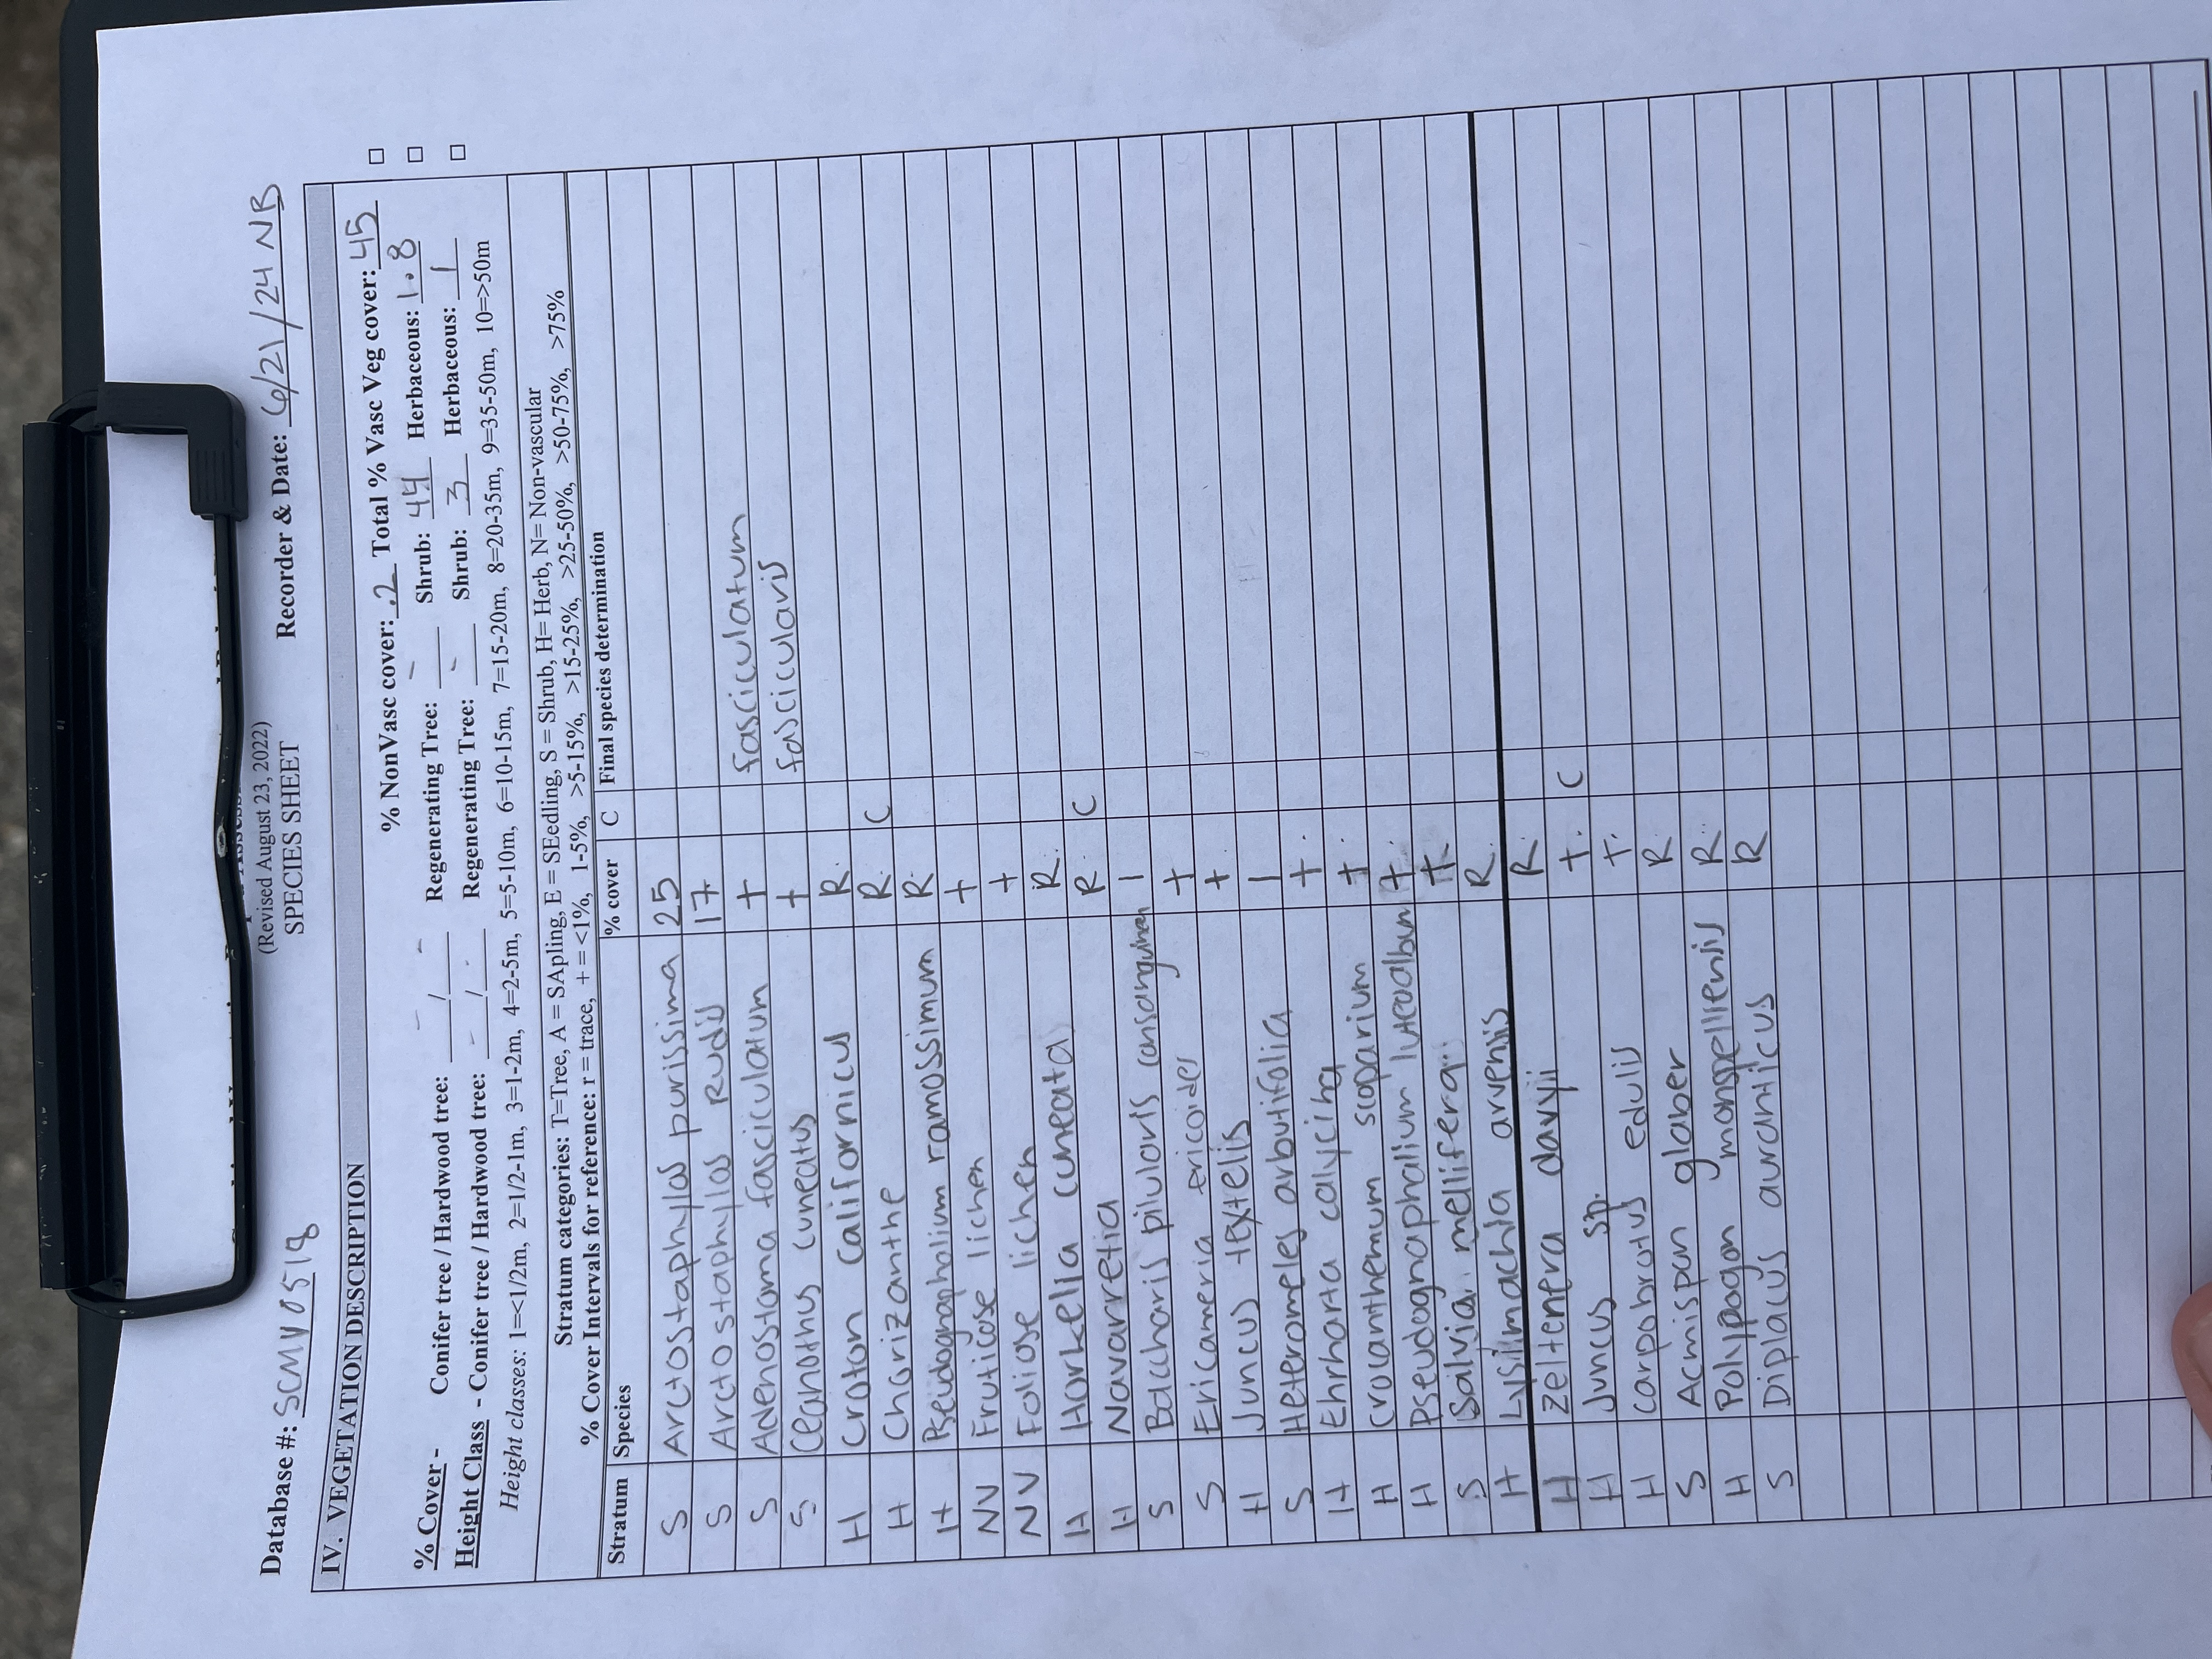 (Revised August 23, 2022)
SPECIES SHEET
Database #: SCMV0518 Recorder & Date: 6/21/24 NB
IV. VEGETATION DESCRIPTION
% NonVasc cover: .2 Total % Vasc Veg cover: 45
% Cover - Conifer tree / Hardwood tree: - / - Regenerating Tree: - Shrub: 44 Herbaceous: 1.8
Height Class - Conifer tree / Hardwood tree: - / - Regenerating Tree: - Shrub: 3 Herbaceous: 1
Height classes: 1=<1/2m, 2=1/2-1m, 3=1-2m, 4=2-5m, 5=5-10m, 6=10-15m, 7=15-20m, 8=20-35m, 9=35-50m, 10=>50m
Stratum categories: T=Tree, A = SApling, E = SEedling, S = Shrub, H= Herb, N= Non-vascular
% Cover Intervals for reference: r = trace, + = <1%, 1-5%, >5-15%, >15-25%, >25-50%, >50-75%, >75%
Stratum Species % cover C Final species determination
S Arctostaphylos purissima 25
S Arctostaphylos rudis 17
S Adenostoma fasciculatum + fasciculatum
S Ceanothus cuneatus + fascicularis
H Croton californicus R
H Chorizanthe R C
H Pseudognaphalium ramossimum R
NV Fruticose lichen +
NV Foliose lichen +
H Horkelia cuneata R
H Navarretia R C
S Baccharis pilularis consanguinea 1
S Ericameria ericoides +
H Juncus textilis +
S Heteromeles arbutifolia 1
H Ehrharta calycina +
H Crocanthemum scoparium +
H Pseudognaphalium luteoalbum +
S Salvia mellifera +
H Lysimachia arvensis R
H Zeltenera davyi R
H Juncus sp. + C
H Carpobrotus edulis +
S Acmispon glaber R
H Polypogon monspeliensis R
S Diplacus auranticus R